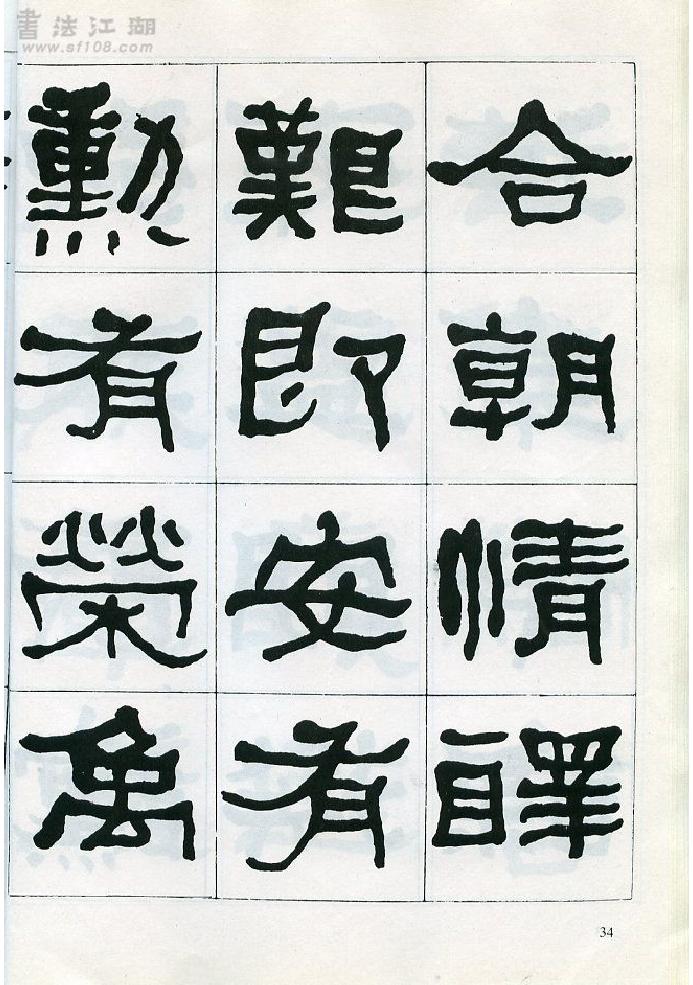 書法江湖
www.sf108.com
合朝情醳
艱即安有
勳有榮禹
34